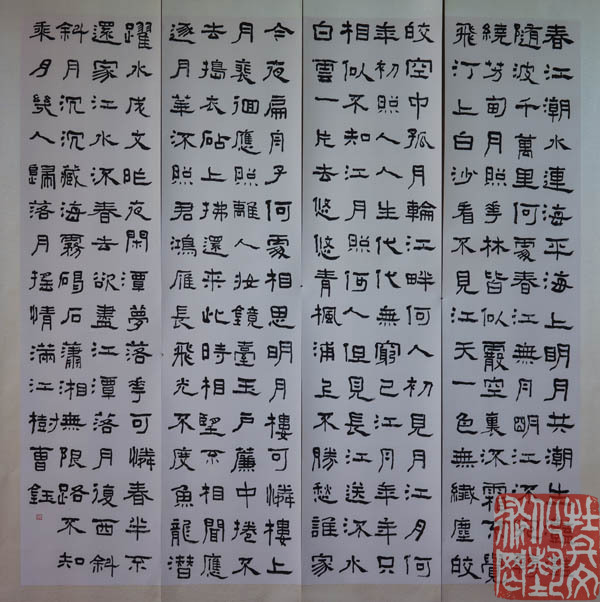 春江潮水連海平海上明月共潮生
隨波千萬里何處春江無月明江流
繞芳甸月照花林皆似霰空裏流霜不覺
飛汀上白沙看不見江天一色無纖塵皎
皎空中孤月輪江畔何人初見月江月何
年初照人人生代代無窮已江月年年只
相似不知江月照何人但見長江送流水
白雲一片去悠悠青楓浦上不勝愁誰家
今夜扁舟子何處相思明月樓可憐樓上
月裵徊應照離人妝鏡臺玉戶簾中捲不
去搗衣砧上拂還來此時相望不相聞應
逐月華流照君鴻雁長飛光不度魚龍潛
躍水成文昨夜閑潭夢落花可憐春半不
還家江水流春去欲盡江潭落月復西斜
斜月沉沉藏海霧碣石瀟湘無限路不知
乘月幾人歸落月搖情滿江樹曹鈺